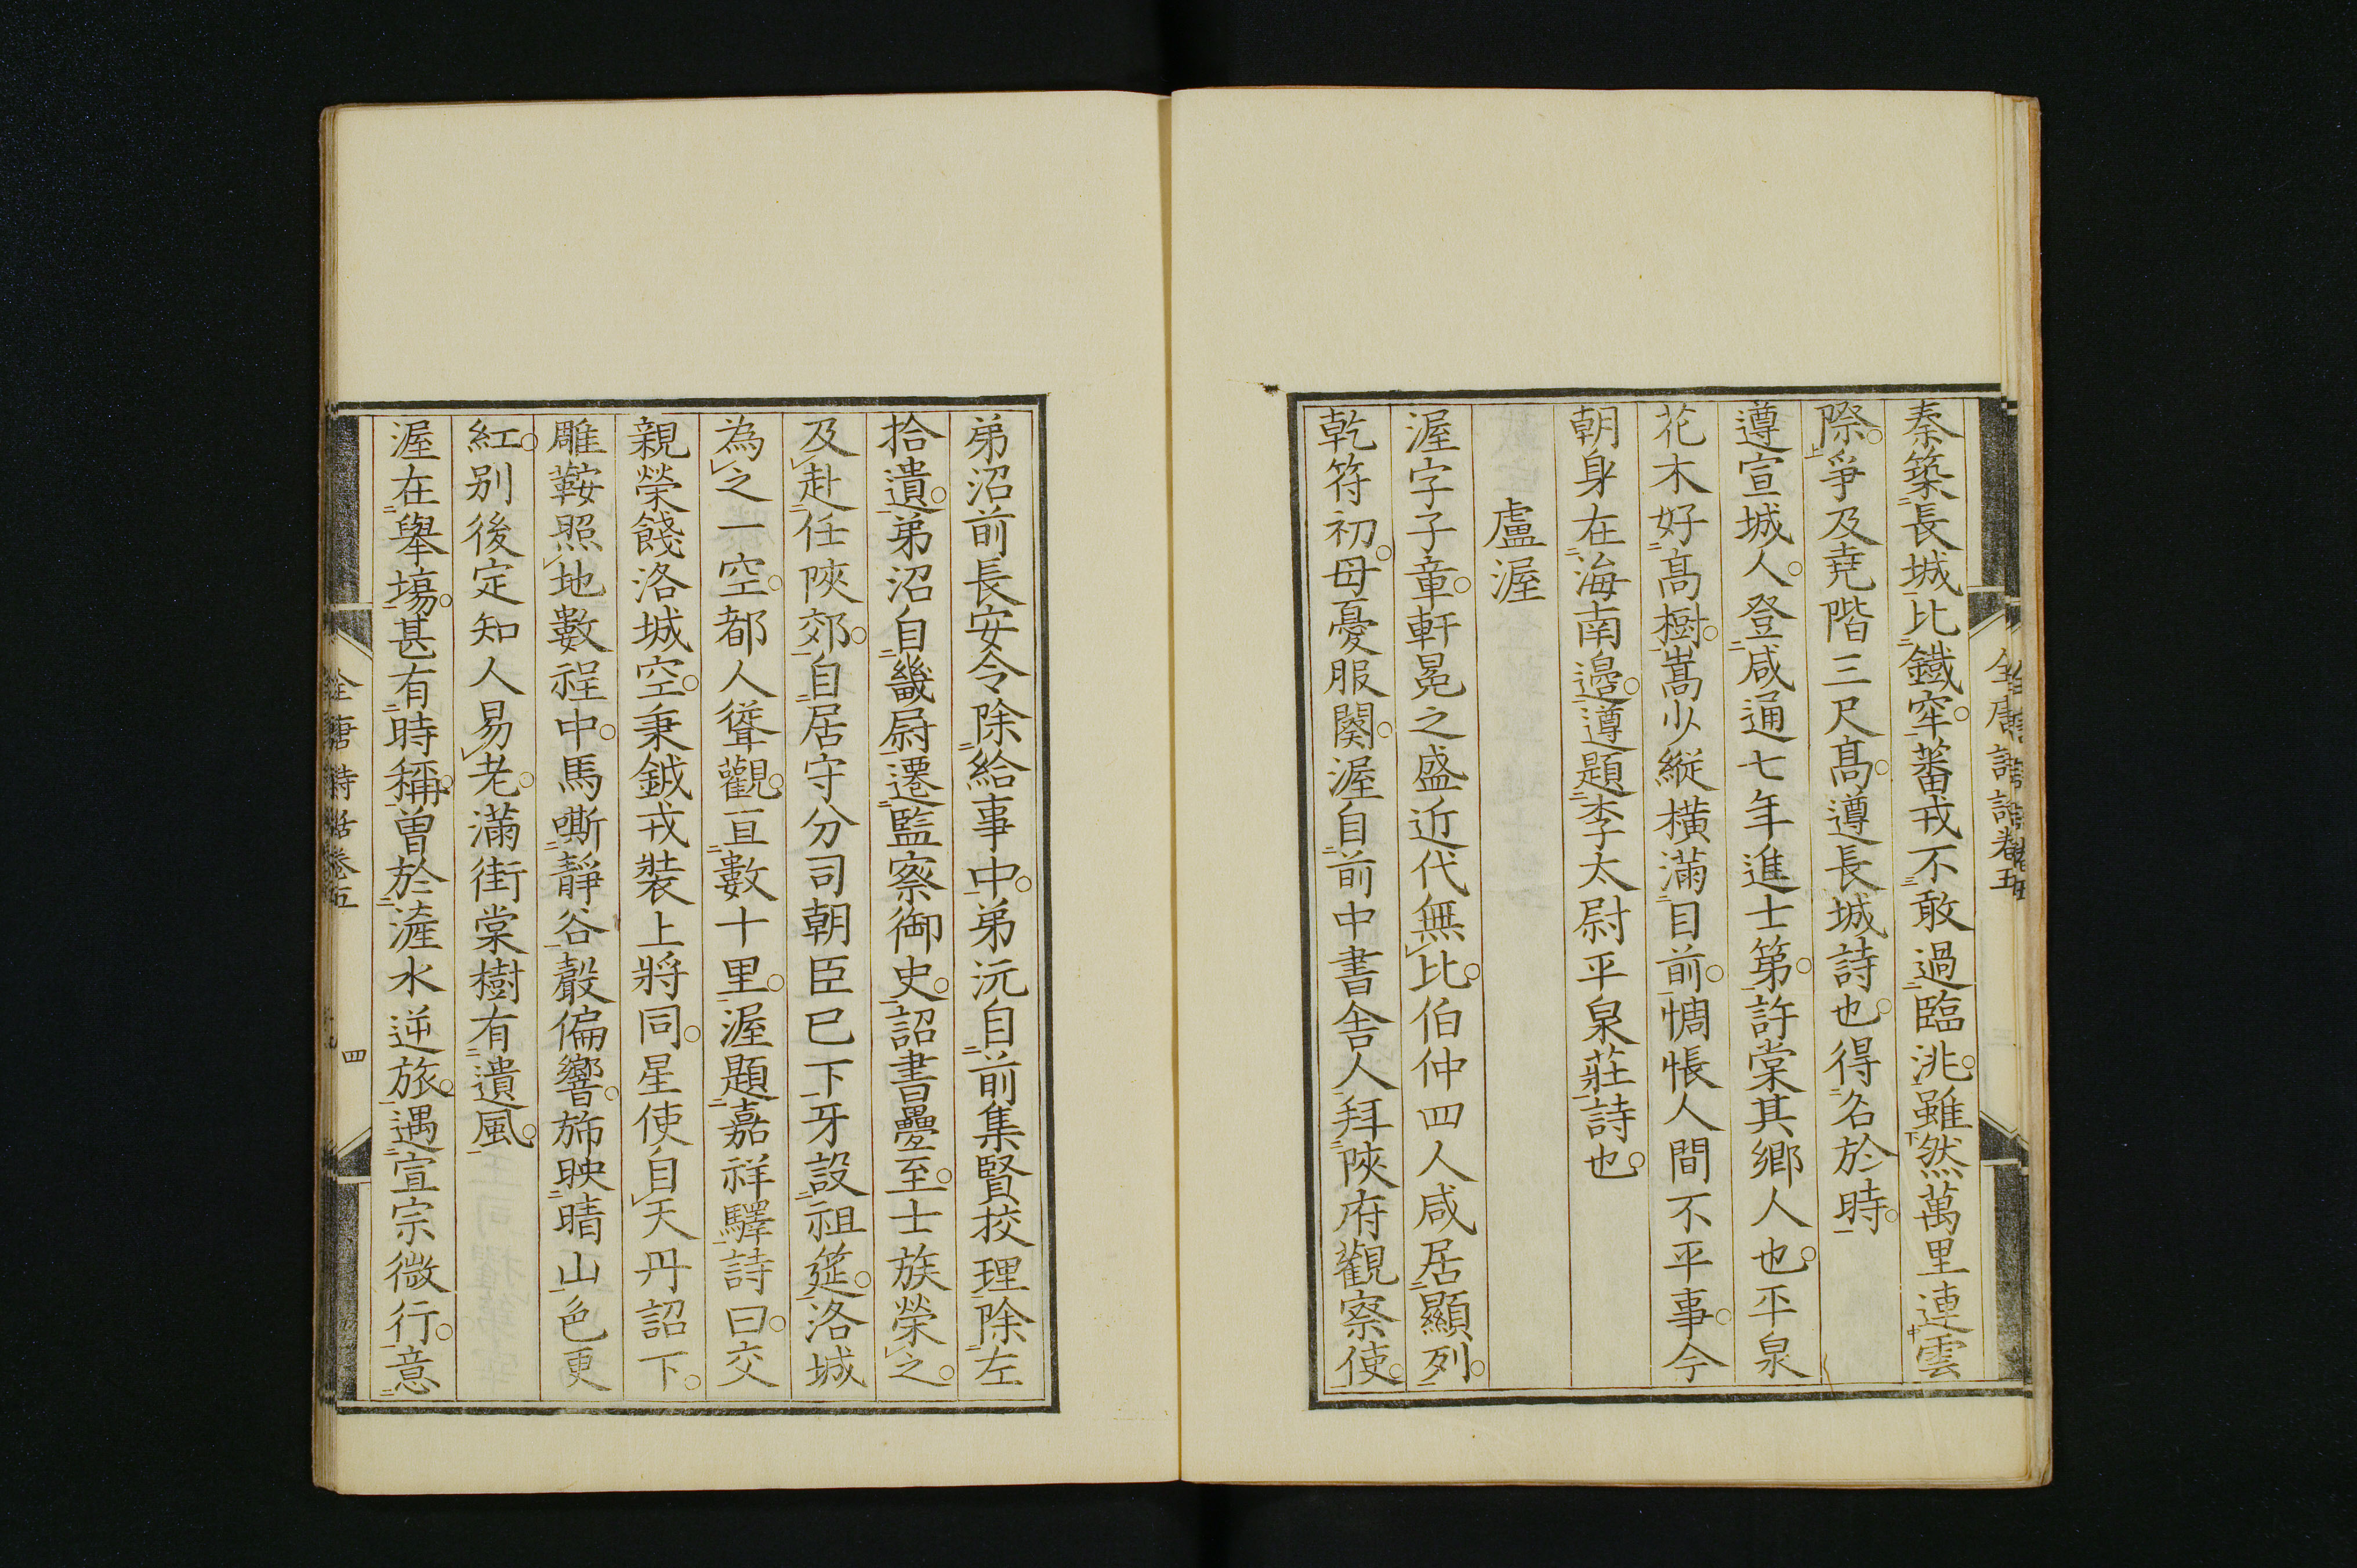 秦築長城比鐵窂。蕃戎不敢過臨洮。雖然萬里連雲
際。爭及堯階三尺高。遵長城詩也。得名於時。
遵宣城人。登咸通七年進士第。許棠其鄉人也。平泉
花木好高樹。嵩少縱橫滿目前。惆悵人間不平事。今
朝身在海南邊。遵題李太尉平泉莊詩也。
盧渥
渥字子章。軒冕之盛近代無比。伯仲四人咸居顯列。
乾符初。母憂服闋。渥自前中書舍人拜陝府觀察使。
弟沼前長安令除給事中。弟沆自前集賢挍理除左
拾遺。弟沼自畿尉遷監察御史。詔書疊至。士族榮之。
及赴任陝郊。自居守分司朝臣已下牙設祖筵。洛城
為之一空。都人聳觀。亘數十里。渥題嘉祥驛詩曰。交
親榮餞洛城空。秉鉞戎裝上將同。星使自天丹詔下。
雕鞍照地數程中。馬嘶靜谷聲偏響。旆映晴山色更
紅。別後定知人易老。滿街棠樹有遺風。
渥在舉場。甚有時稱。曾於滻水逆旅。遇宣宗微行。意
全唐詩話卷五
四